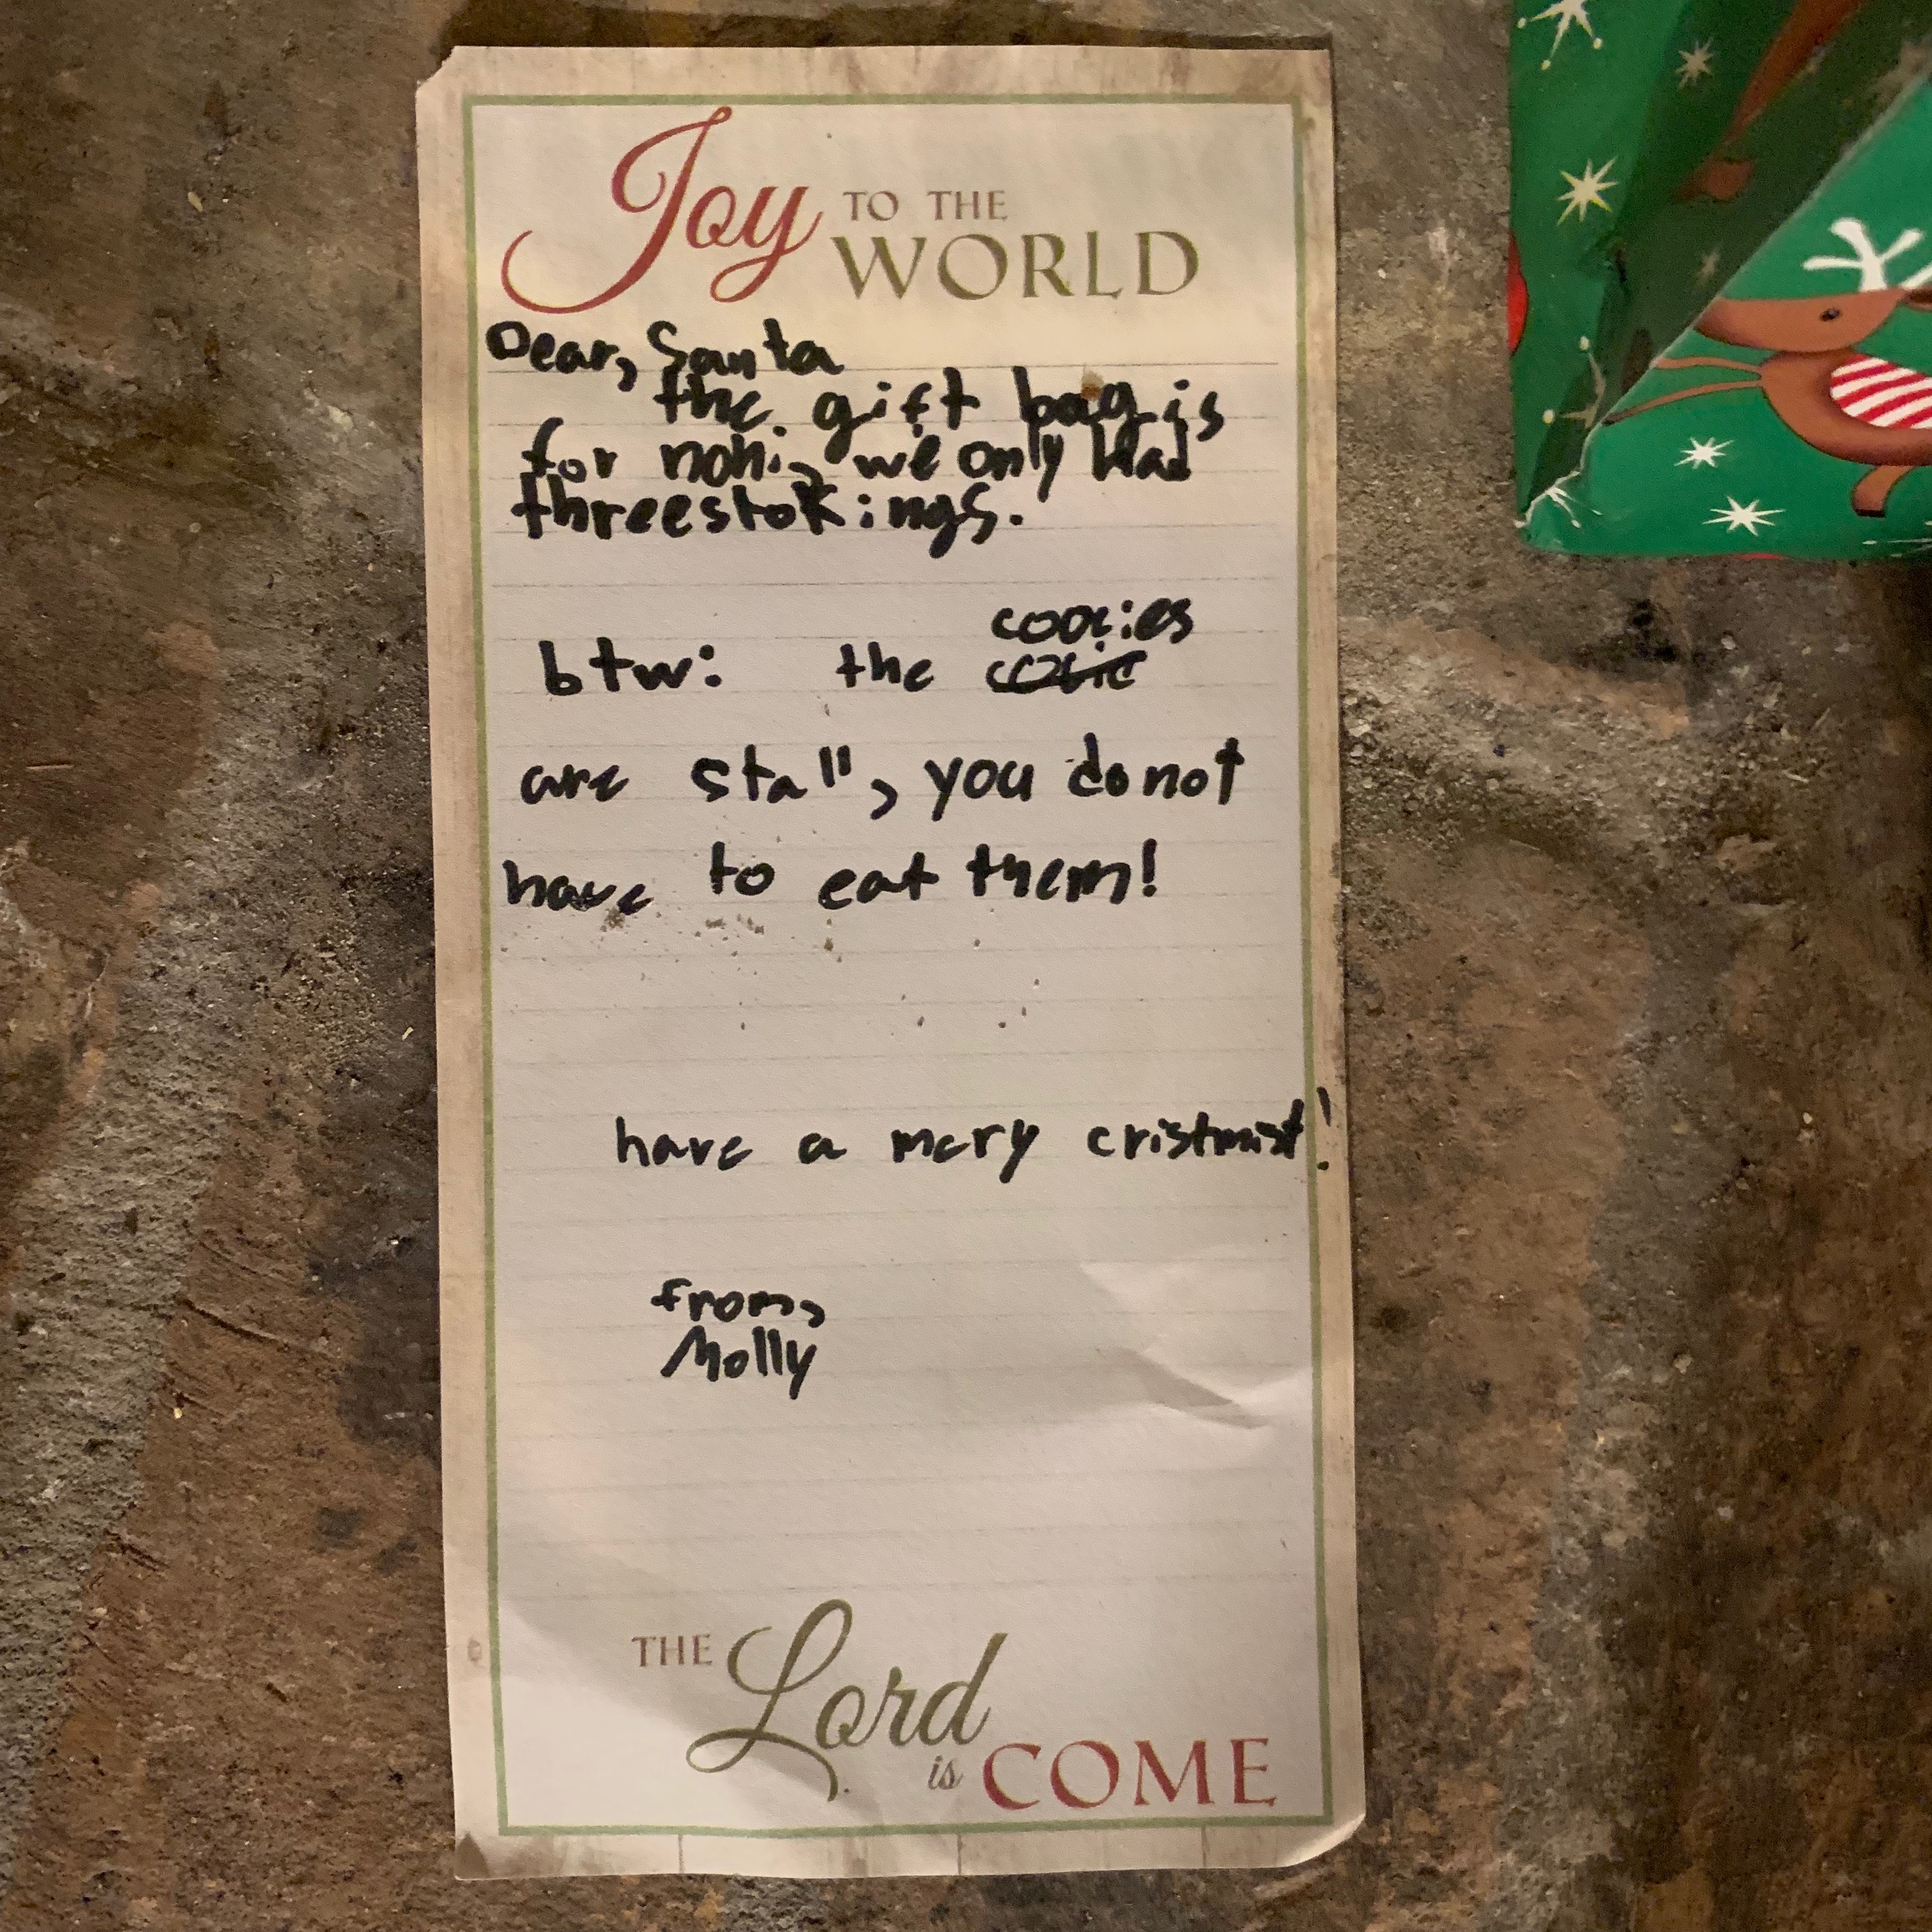 Joy TO THE
WORLD
Dear, Santa
the gift bag is
for nohi, we only had
threestokings.
coocies
btw: the
are stall, you do not
have to eat them!
have a mery cristmist!
from,
Molly
THE Lord
is COME